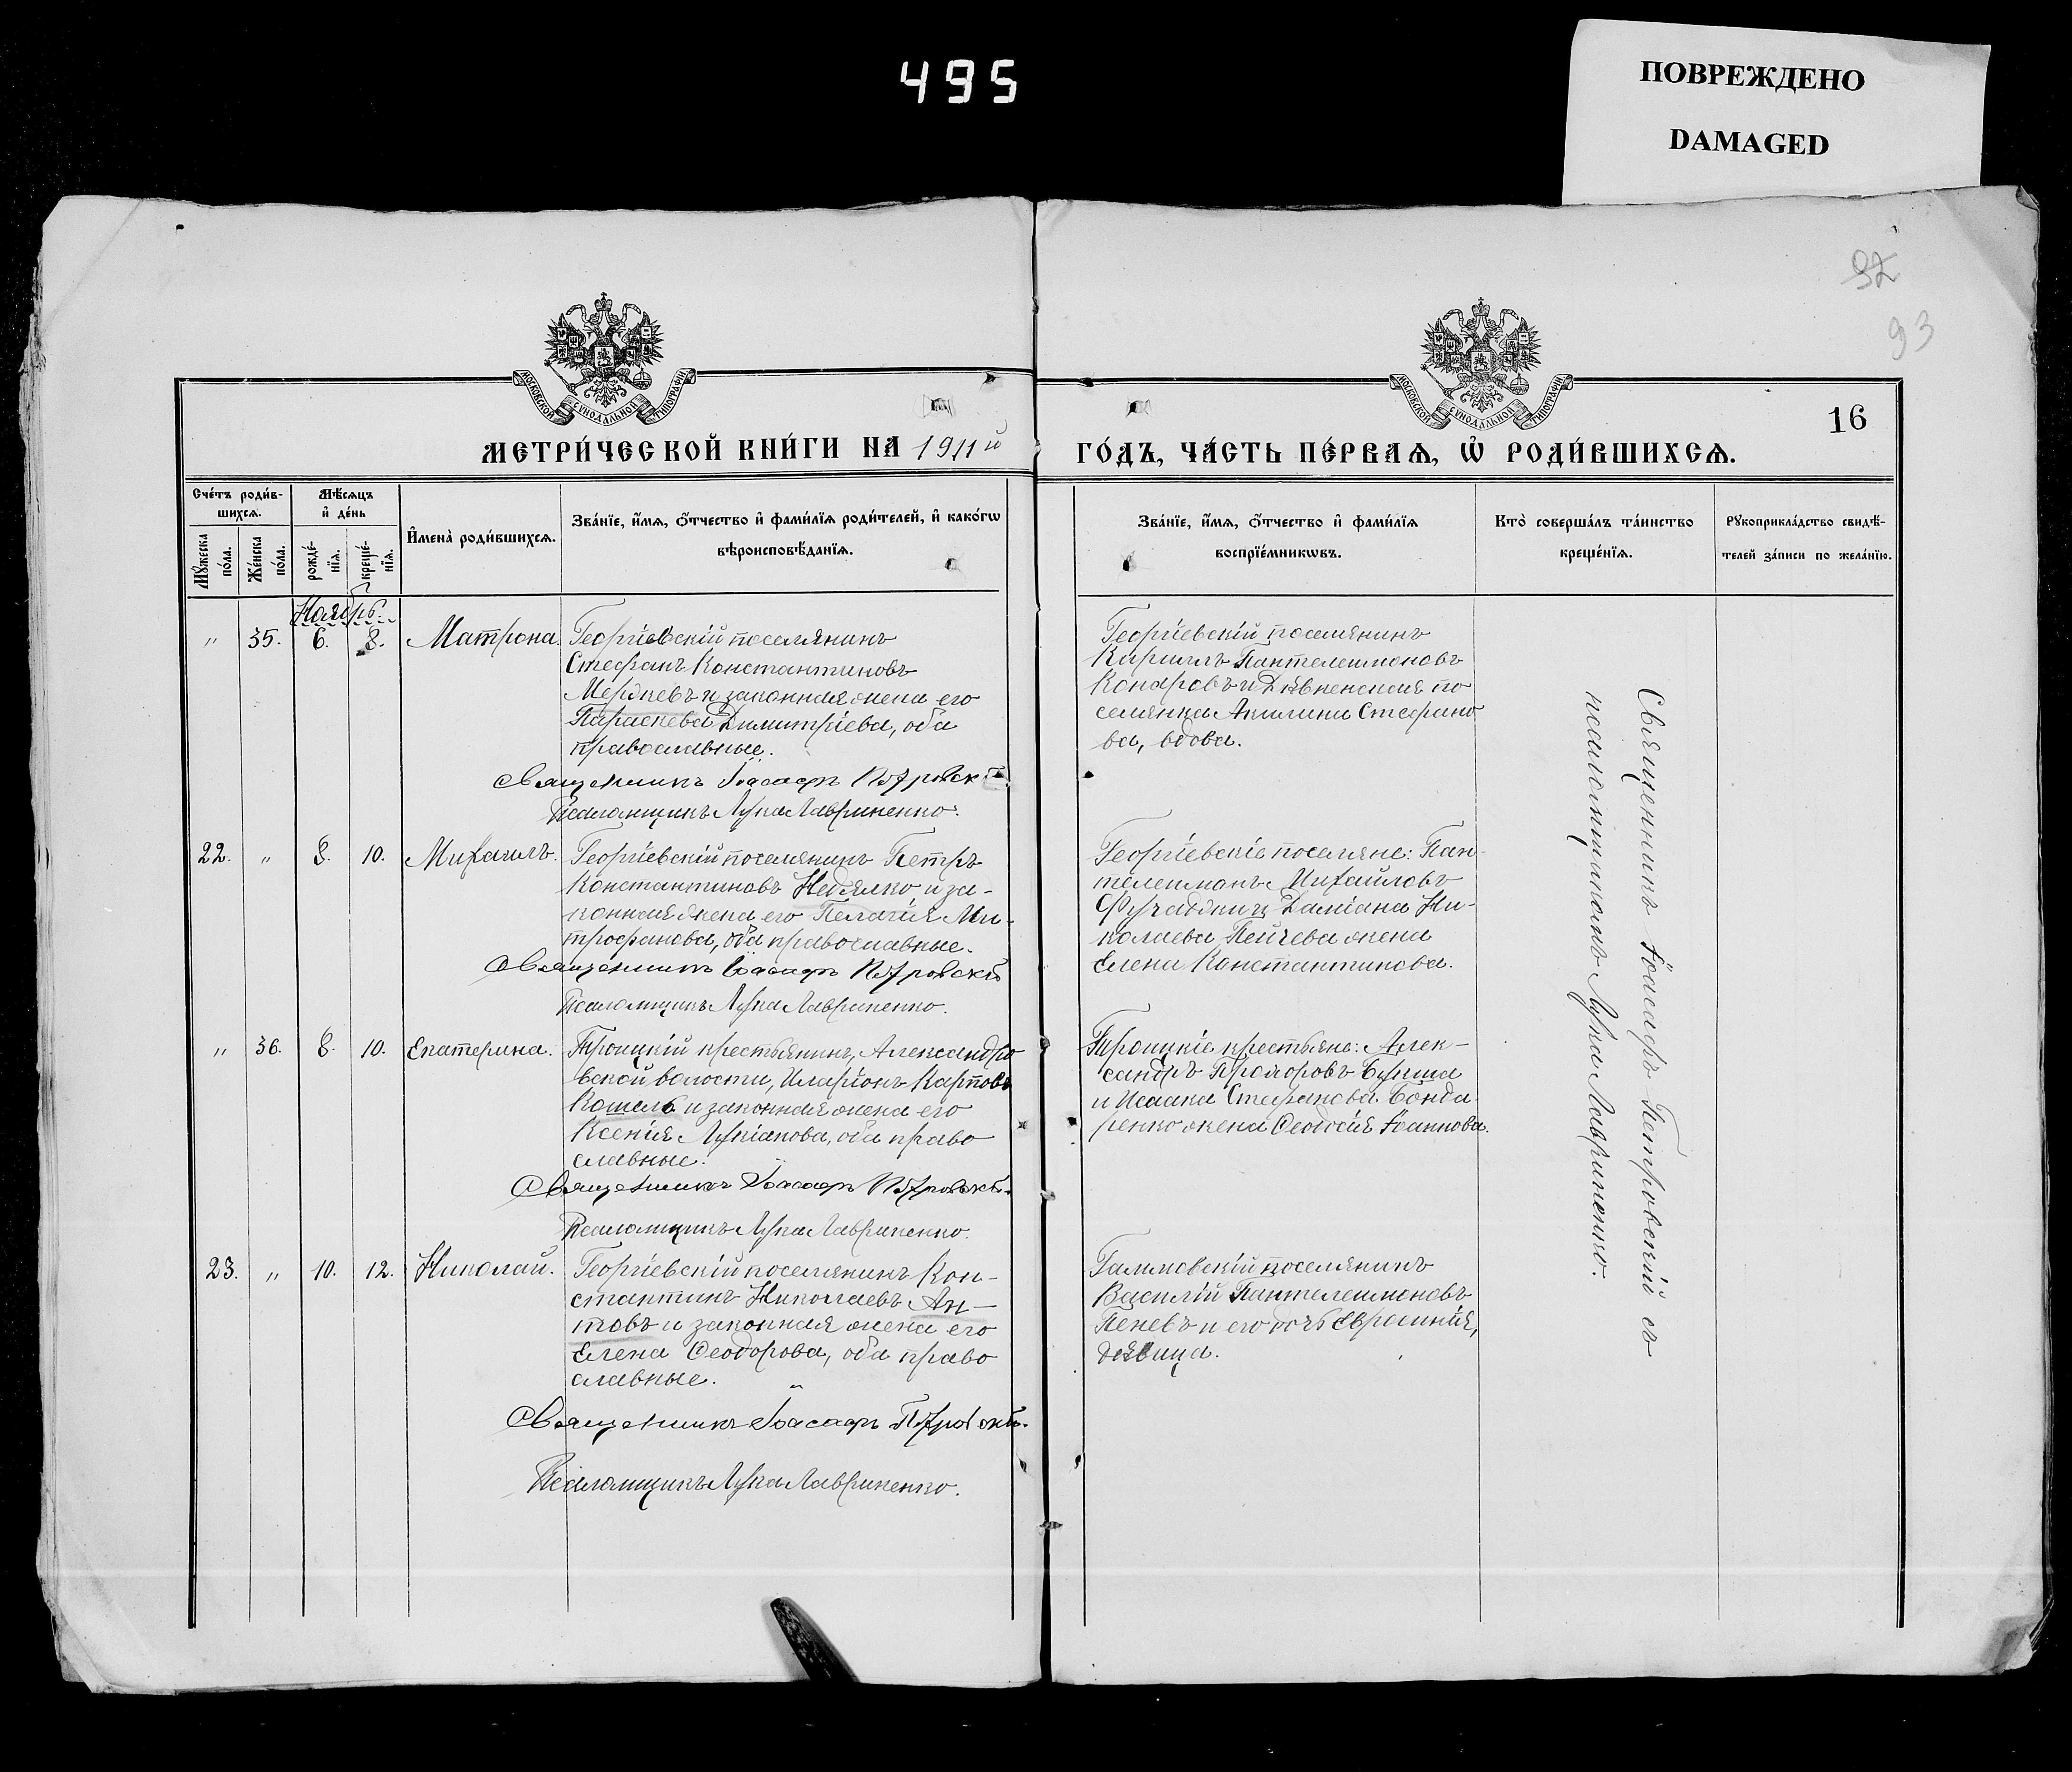 495
ПОВРЕЖДЕНО
DAMAGED
92
93
МОСКОВСКОЙ СУНОДАЛЬНОЙ ТИПОГРАФІИ
МОСКОВСКОЙ СУНОДАЛЬНОЙ ТИПОГРАФІИ
16
МЕТРИ́ЧЕСКОЙ КНИ́ГИ НА 1911й
ГО́ДЪ, ЧА́СТЬ ПЕ́РВАѦ, Ѡ҆ РОДИ́ВШИХСѦ.
Сче́тъ роди́в-
шихсѧ.
Мꙋ́жеска
по́ла.
Же́нска
по́ла.
Мѣ́сѧцъ
и҆ де́нь
рожде́-
нїѧ.
креще́-
нїѧ.
И҆мена̀ роди́вшихсѧ.
Зва́нїе, и҆́мѧ, ѻ҆́тчество и҆ фами́лїѧ роди́телей, и҆ како́гѡ
вѣроисповѣ́данїѧ.
Зва́нїе, и҆́мѧ, ѻ҆́тчество и҆ фами́лїѧ
воспрїе́мникѡвъ.
Кто̀ соверша́лъ та́инство
креще́нїѧ.
Рꙋкоприкла́дство свидѣ́-
телей за́писи по жела́нїю.
Ноябрь.
" 35. 6. 8. Матрона.
Георгіевскій поселянинъ
Стефанъ Константиновъ
Мерджевъ и законная жена его
Параскева Димитріева, оба
православные.
Священникъ Іоасафъ Петровскій
Псаломщикъ Лука Лавриненко.
Георгіевскій поселянинъ
Кириллъ Пантелеимоновъ
Кондровъ и Дѣвненская по
селянка Акилина Стефано
ва, вдова.
22. " 8. 10. Михаилъ.
Георгіевскій поселянинъ Петръ
Константиновъ Недялко и за-
конная жена его Пелагія Ми-
трофанова, оба православные.
Священникъ Іоасафъ Петровскій
Псаломщикъ Лука Лавриненко.
Георгіевскіе поселяне: Пан-
телеимонъ Михайловъ
и Даміана Ни-
колаева Пейчева жена
Елена Константинова.
" 36. 8. 10. Екатерина.
Троицкій крестьянинъ, Александро
вской волости, Иларіонъ Карповъ
Кошель и законная жена его
Ксенія Лукіанова, оба право
славные.
Священникъ Іоасафъ Петровскій.
Псаломщикъ Лука Лавриненко.
Троицкіе крестьяне: Алек-
сандръ Прохоровъ
и Исаака Стефанова Бонда
ренко жена Ѳеодосія Іоаннова.
23. " 10. 12. Николай.
Георгіевскій поселянинъ Кон-
стантинъ Николаевъ Ан-
товъ и законная жена его
Елена Ѳеодорова, оба право
славные.
Священникъ Іоасафъ Петровскій.
Псаломщикъ Лука Лавриненко.
поселянинъ
Василій Пантелеимоновъ
Пеневъ и его дочь Евфимія,
дѣвица.
Священникъ Іоасафъ Петровскій съ
псаломщикомъ Лука Лавриненко.